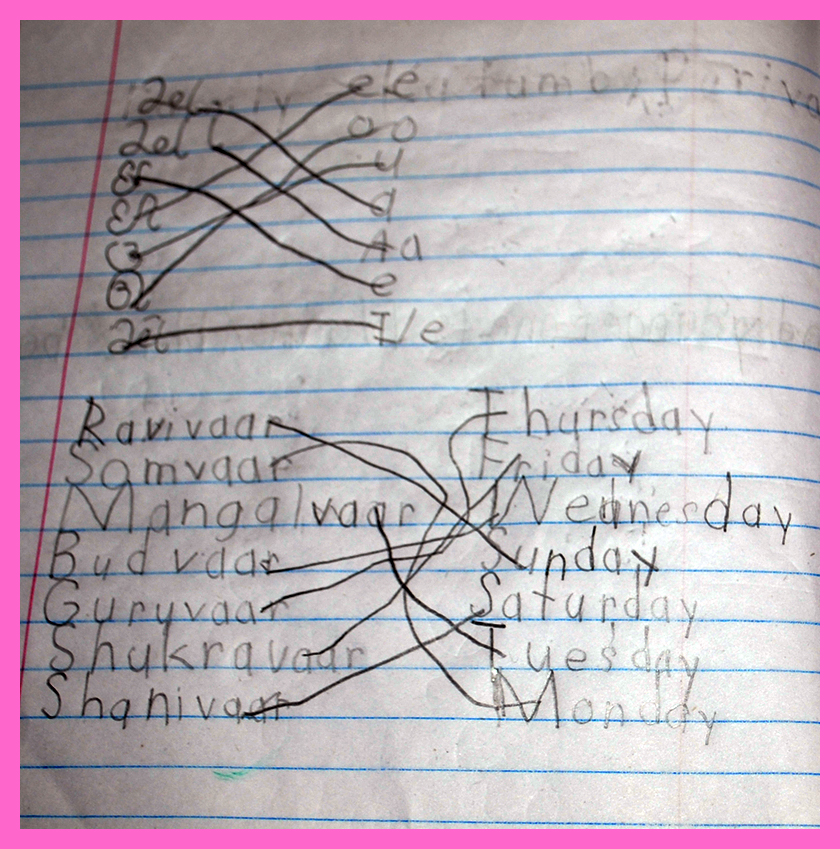 અ ee
આ oo
ઇ u
ઈ a
ઉ Aa
ઊ e
I/e
Ravivaar Thursday
Somvaar Friday
Mangalvaar Wednesday
Budvaar Sunday
Guruvaar Saturday
Shukravaar Tuesday
Shanivaar Monday